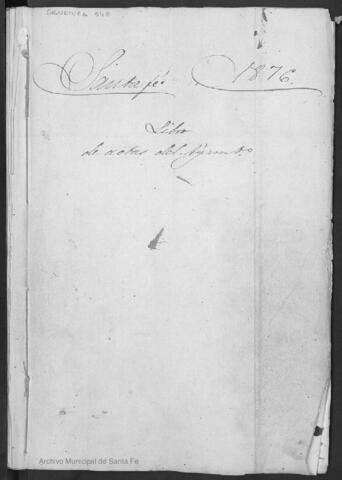 SIGNATURA 548
Santafé 1876.
Libro
de actas del Ayunt.o
Archivo Municipal de Santa Fe